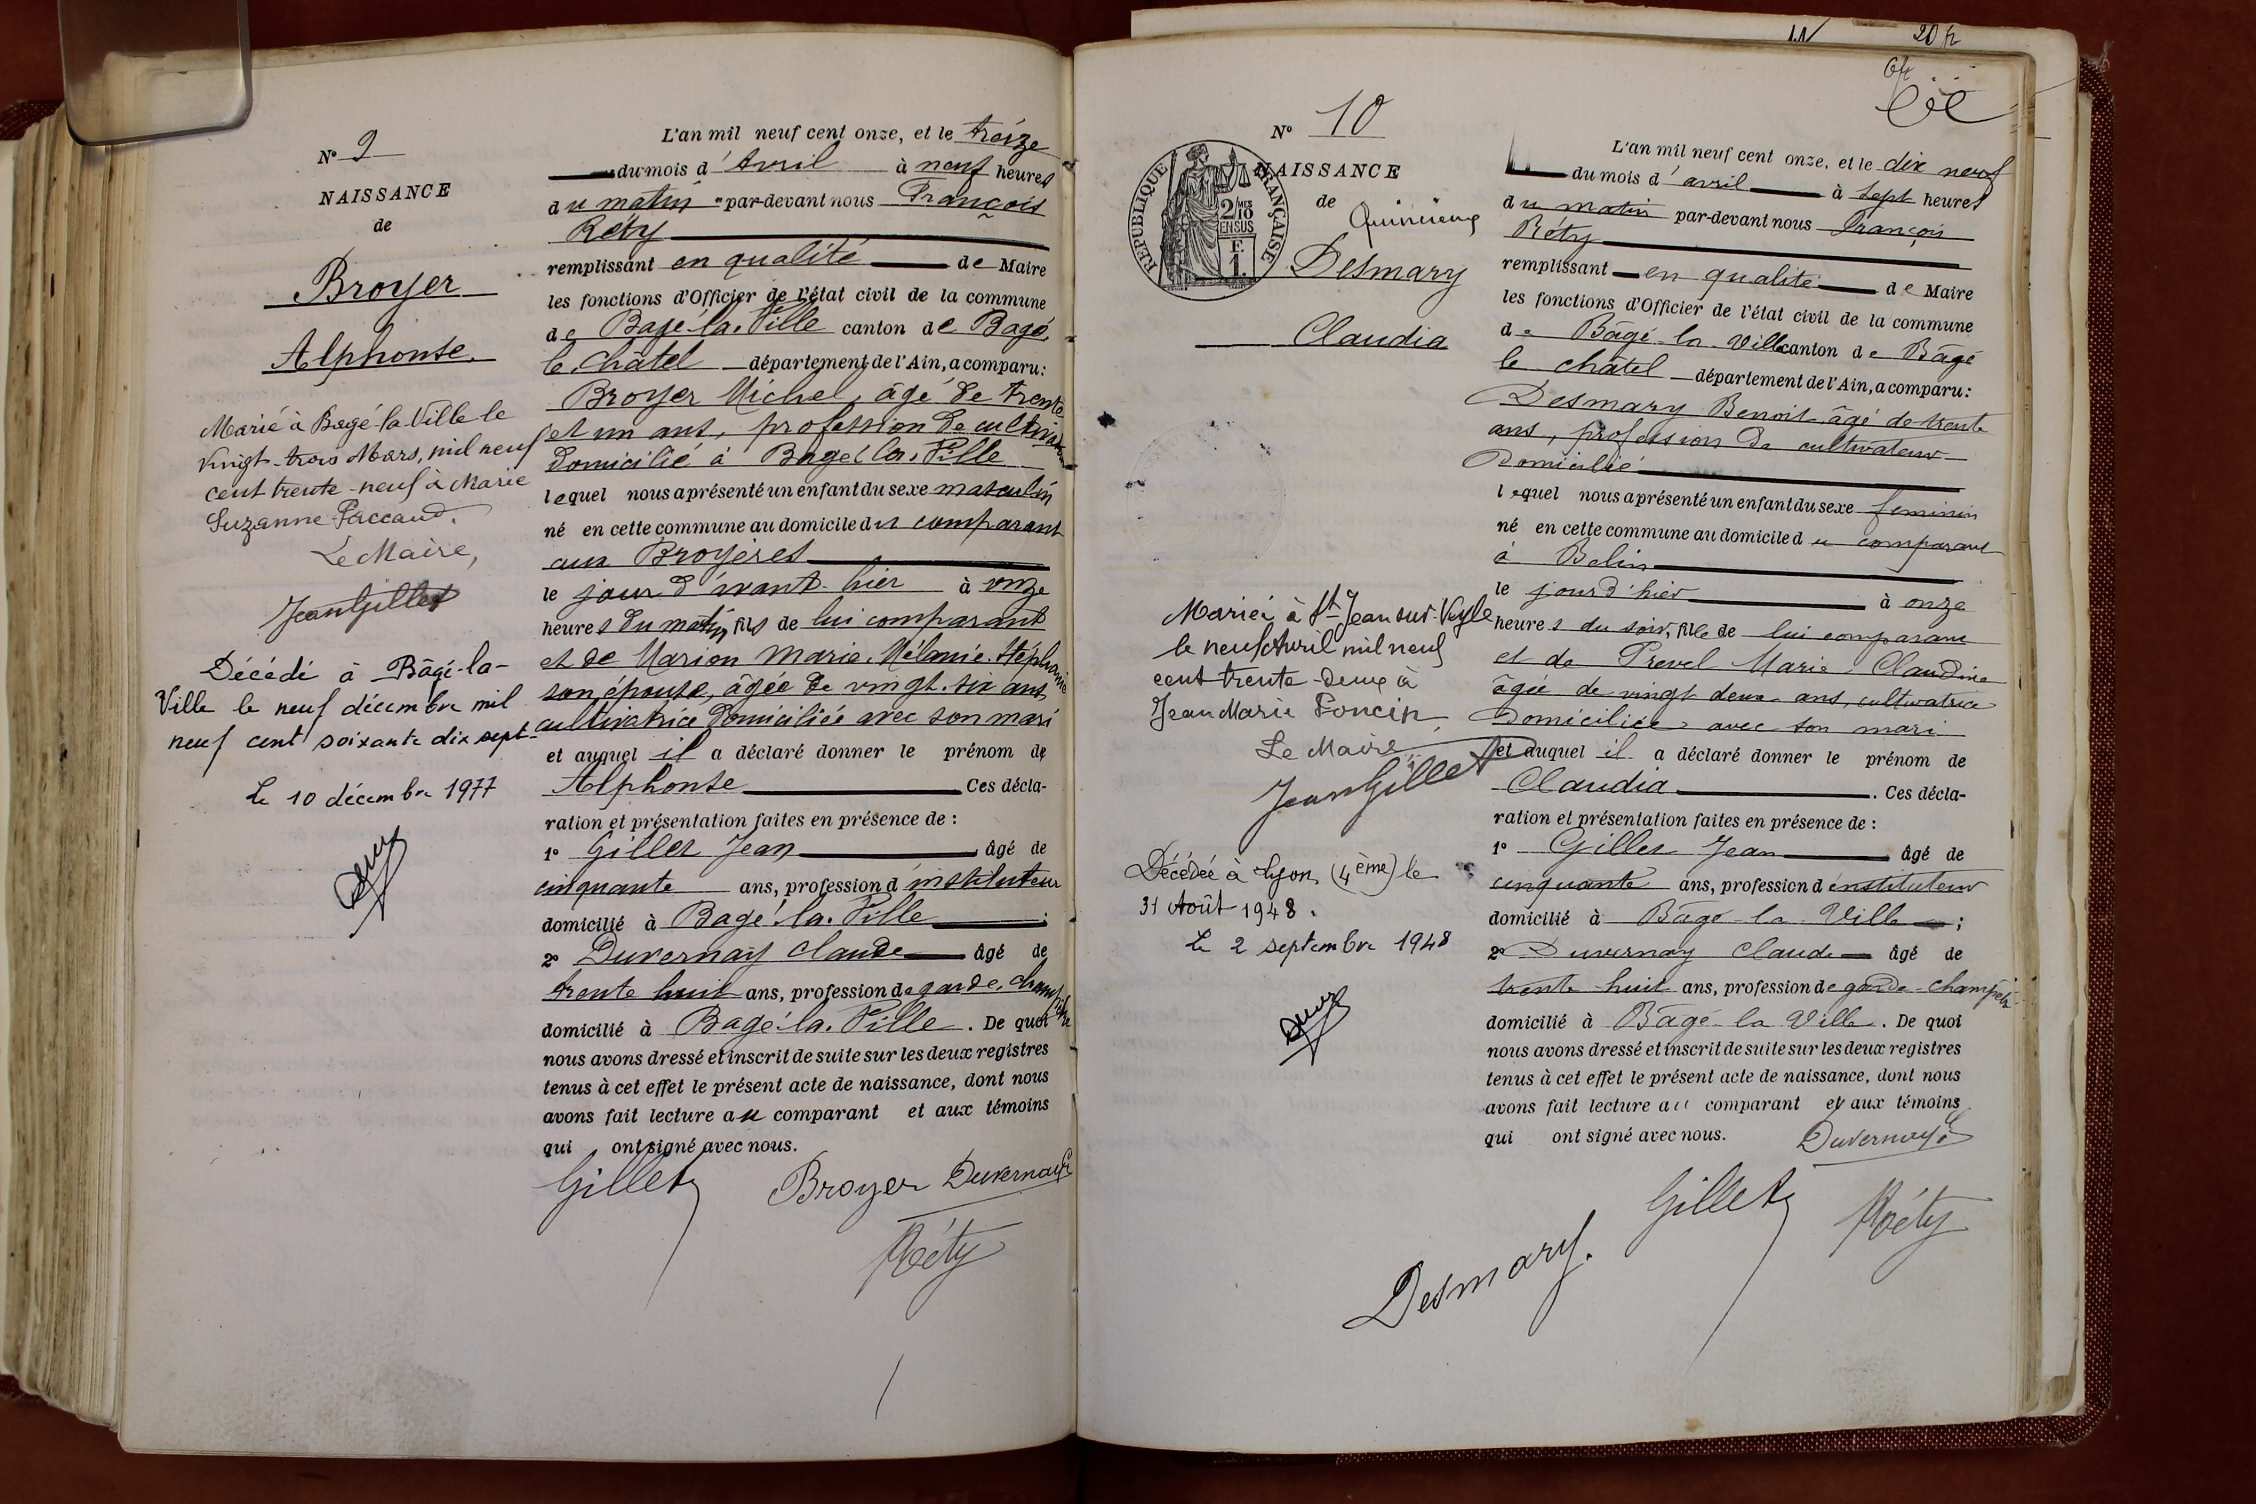 N° 9
NAISSANCE
de
Broyer
Alphonse
Marié à Bagé-la-Ville le
vingt-trois Mars, mil neuf
cent trente-neuf à Marie
Suzanne Paccaud.
Le Maire,
Jean Gillet
Décédé à Bâgé-la-
Ville le neuf décembre mil
neuf cent soixante dix sept
Le 10 décembre 1977
L'an mil neuf cent onze, et le treize
du mois d'Avril à neuf heures
du matin par-devant nous François
Réty
remplissant en qualité de Maire
les fonctions d'Officier de l'état civil de la commune
de Bagé-la-Ville canton de Bagé
le Châtel département de l'Ain, a comparu :
Broyer Michel, âgé de trente
et un ans, profession de cultivateur
domicilié à Bagé-la-Ville
lequel nous a présenté un enfant du sexe masculin
né en cette commune au domicile du comparant
aux Broyères
le jour d'avant-hier à onze
heures du matin, fils de lui comparant
et de Marion Marie Mélanie Stéphanie
son épouse, âgée de vingt-six ans,
cultivatrice domiciliée avec son mari
et auquel il a déclaré donner le prénom de
Alphonse Ces décla-
ration et présentation faites en présence de :
1° Gillet Jean âgé de
cinquante ans, profession d'instituteur
domicilié à Bagé-la-Ville ;
2° Duvernay Claude âgé de
trente huit ans, profession de garde-champêtre
domicilié à Bagé-la-Ville. De quoi
nous avons dressé et inscrit de suite sur les deux registres
tenus à cet effet le présent acte de naissance, dont nous
avons fait lecture au comparant et aux témoins
qui ont signé avec nous.
Gillet Broyer Duvernay
Réty
20
N° 10
NAISSANCE
de
RÉPUBLIQUE FRANÇAISE
2/10 EN SUS
F. 1.
Desmary
Claudia
Mariée à St Jean sur Veyle
le neuf Avril mil neuf
cent trente-deux à
Jean Marie Poncin
Le Maire
Jean Gillet
Décédée à Lyon (4ème) le
31 Août 1948.
Le 2 septembre 1948
L'an mil neuf cent onze, et le dix neuf
du mois d'avril à sept heures
du matin par-devant nous François
Réty
remplissant en qualité de Maire
les fonctions d'Officier de l'état civil de la commune
de Bâgé-la-Ville canton de Bâgé
le châtel département de l'Ain, a comparu :
Desmary Benoit âgé de trente
ans, profession de cultivateur
Domicilié
lequel nous a présenté un enfant du sexe feminin
né en cette commune au domicile du comparant
à Belin
le jour d'hier à onze
heures du soir, fille de lui comparant
et de Prevel Marie Claudine
âgée de vingt deux ans, cultivatrice
Domiciliée avec son mari
et auquel il a déclaré donner le prénom de
Claudia . Ces décla-
ration et présentation faites en présence de :
1° Gillet Jean âgé de
cinquante ans, profession d'instituteur
domicilié à Bâgé-la-Ville ;
2° Duvernay Claude âgé de
trente-huit ans, profession de garde-champêtre
domicilié à Bâgé-la-Ville. De quoi
nous avons dressé et inscrit de suite sur les deux registres
tenus à cet effet le présent acte de naissance, dont nous
avons fait lecture au comparant et aux témoins
qui ont signé avec nous. Duvernay
Gillet Réty
Desmary.